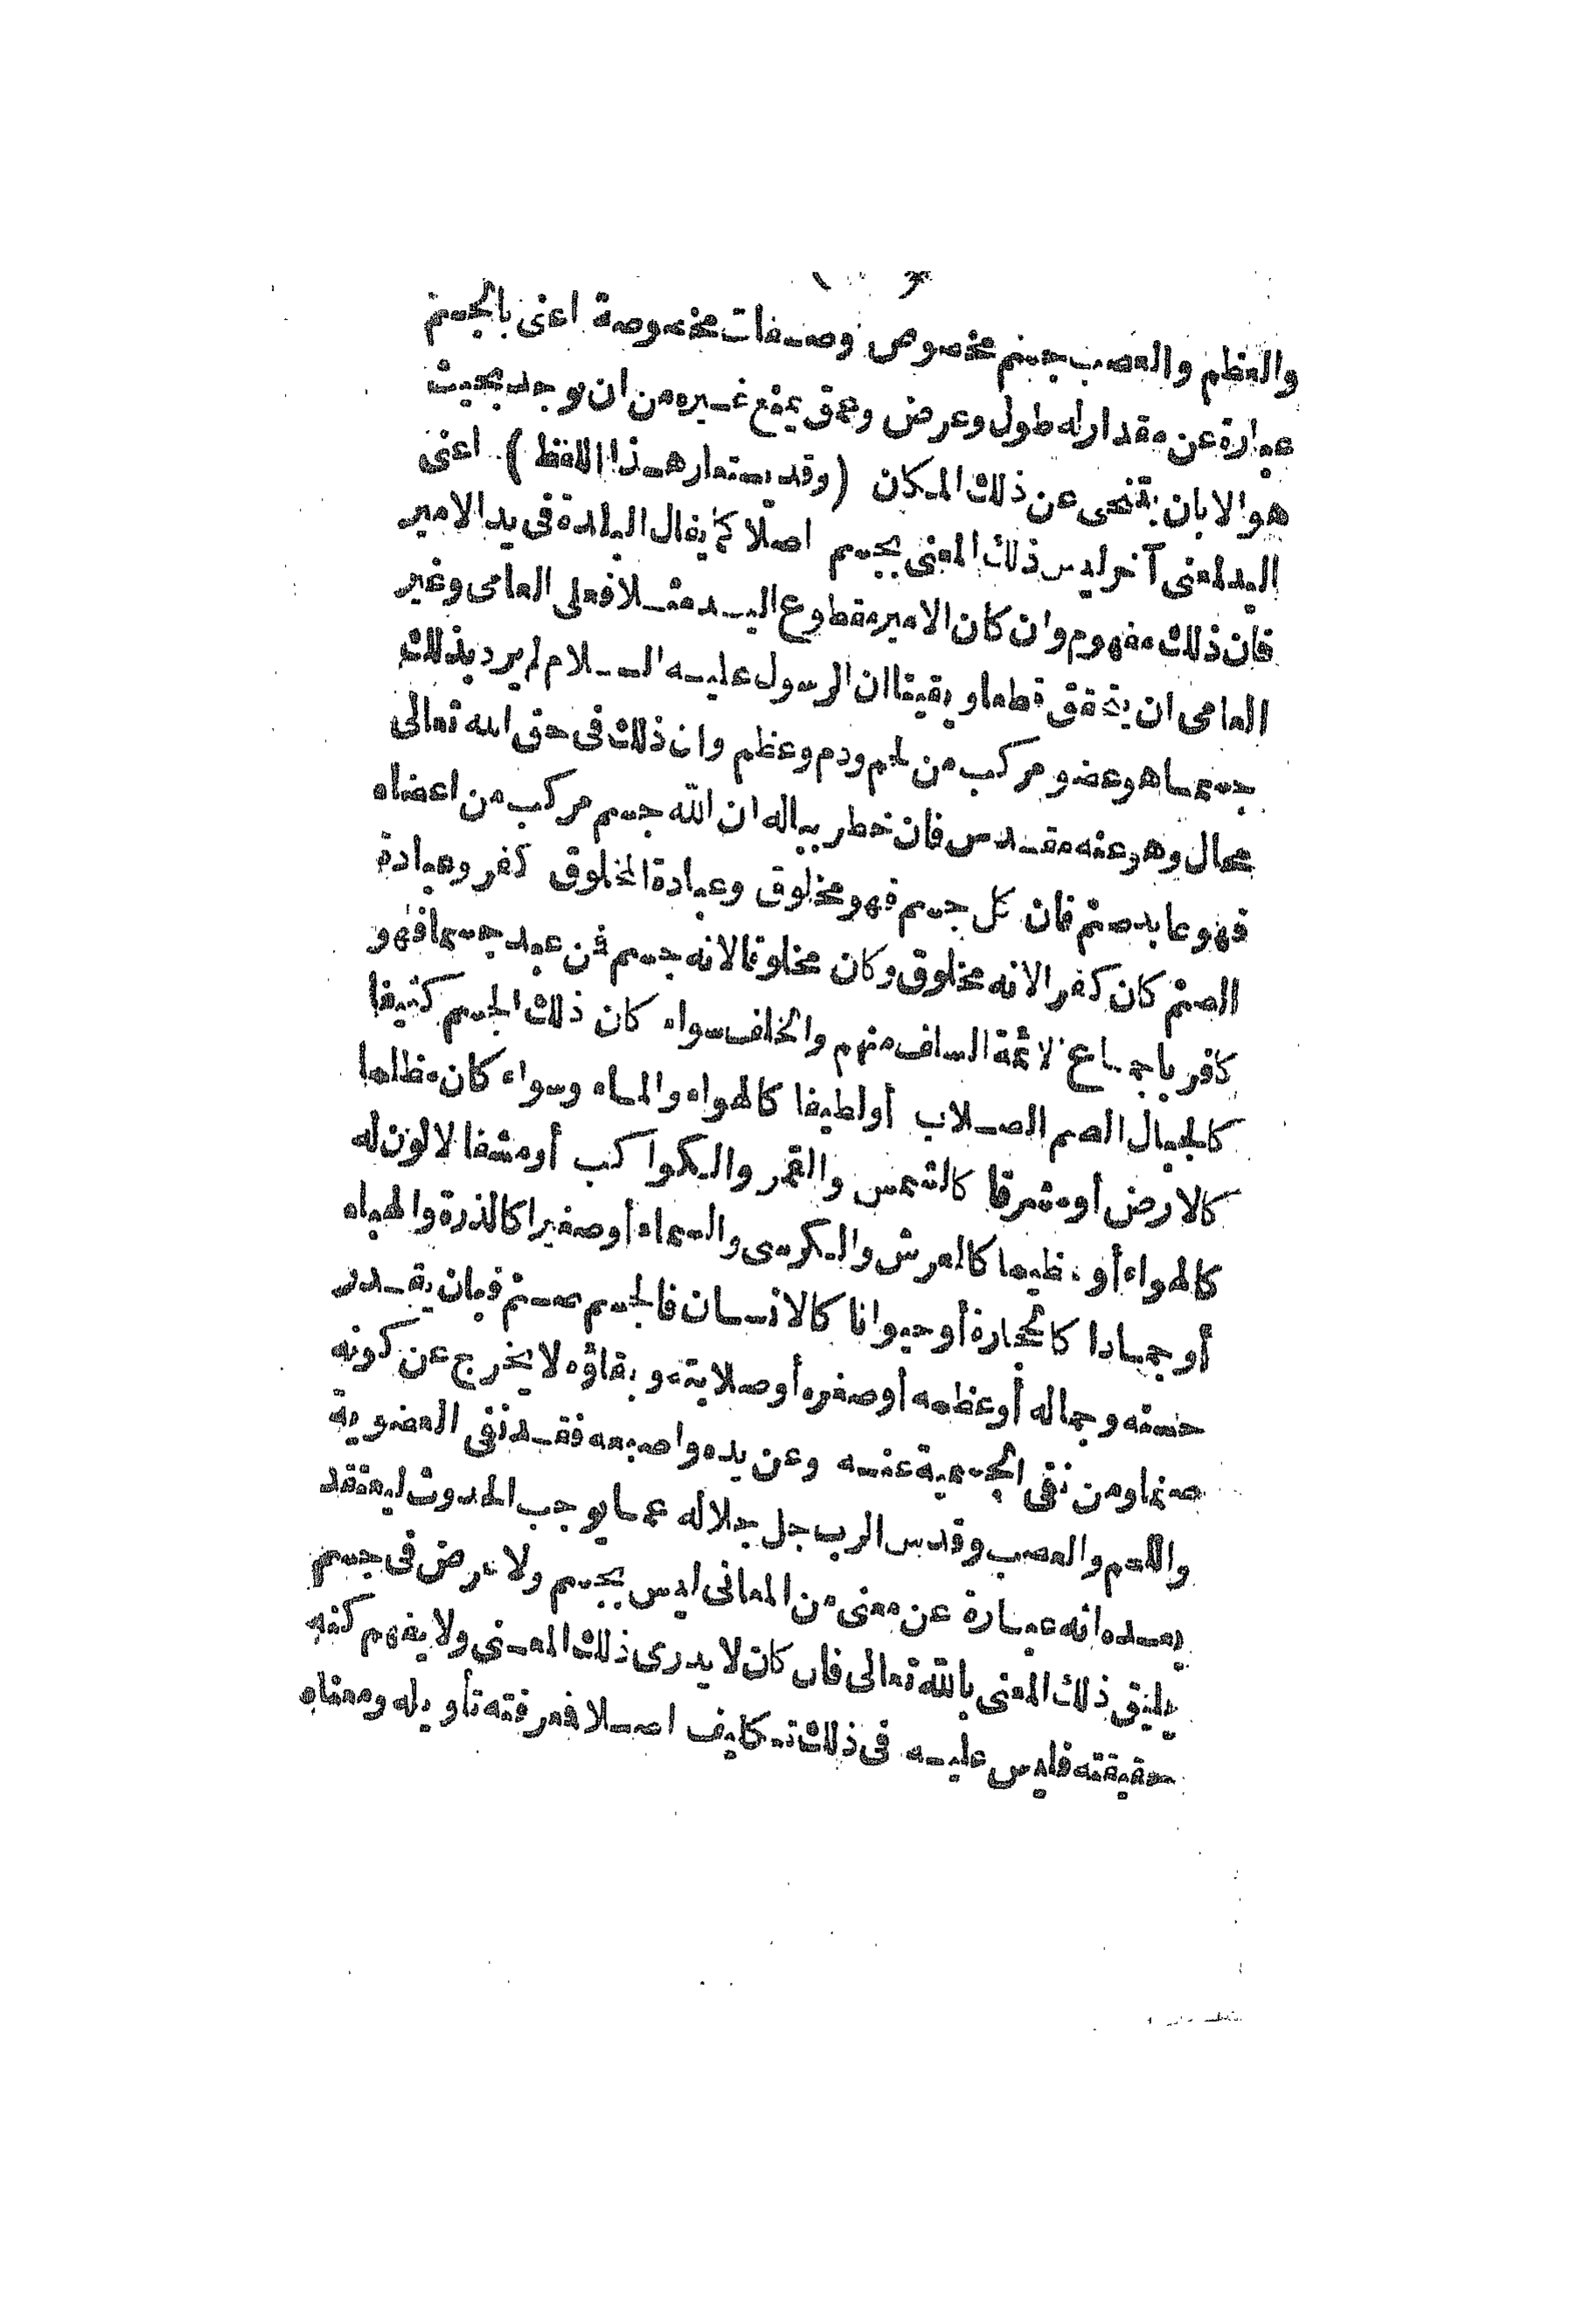 والعظم والعصب جسم مخصوص وصفات مخصوصة اعنى بالجسم
عبارة عن مقدار له طول وعرض وعمق يمنع غيره من ان يوجد بحيث
هو الا بان يتنحى عن ذلك المكان (وقد يستعار هذا اللفظ) اعنى
اليد لمعنى آخر ليس ذلك المعنى بجسم اصلا كما يقال البلدة فى يد الامير
فان ذلك مفهوم وان كان الامير مقطوع اليد مثلا فعلى العامى وغير
العامى ان يتحقق قطعا ويقينا ان الرسول عليه السلام لم يرد بذلك
جسما هو عضو مركب من لحم ودم وعظم وان ذلك فى حق الله تعالى
محال وهو عنه مقدس فان خطر بباله ان الله جسم مركب من اعضاء
فهو عابد صنم فان كل جسم فهو مخلوق وعبادة المخلوق كفر وعبادة
الصنم كان كفرا لانه مخلوق وكان مخلوقا لانه جسم فمن عبد جسما فهو
كافر باجماع الائمة السلف منهم والخلف سواء كان ذلك الجسم كثيفا
كالجبال الصم الصلاب أو لطيفا كالهواء والماء وسواء كان مظلما
كالارض أو مشرقا كالشمس والقمر والكواكب أو مشفا لا لون له
كالهواء أو عظيما كالعرش والكرسى والسماء أو صغيرا كالذرة والهباء
أو جمادا كالحجارة أو حيوانا كالانسان فالجسم صنم فبان يقدر
حسنه وجماله أو عظمه أو صغره أو صلابته وبقاؤه لا يخرج عن كونه
صنما ومن نفى الجسمية عنه وعن يده واصبعه فقد نفى العضوية
واللحم والعصب وقدس الرب جل جلاله عما يوجب الحدوث ليعتقد
بعده انه عبارة عن معنى من المعانى ليس بجسم ولا عرض فى جسم
يليق ذلك المعنى بالله تعالى فان كان لا يدرى ذلك المعنى ولا يفهم كنه
حقيقته فليس عليه فى ذلك تكليف اصلا فمعرفته تأويله ومعناه